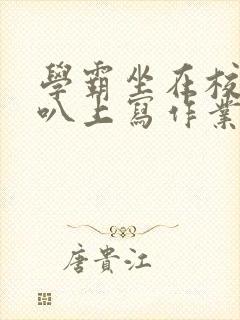 學霸坐在校
叭上寫作業
唐貴江